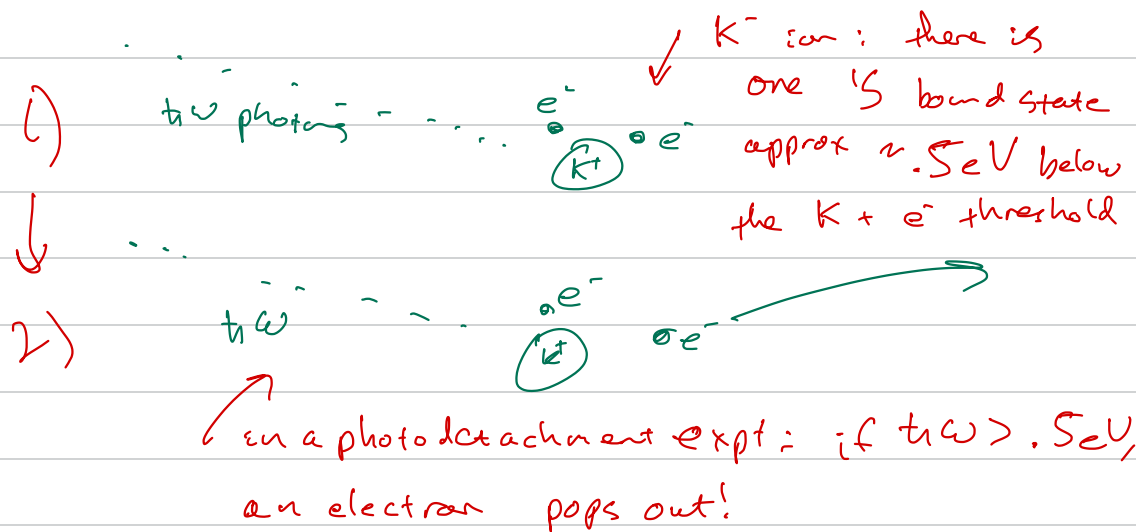 K⁻ ion : there is
1) ħω photons e⁻ K⁺ e⁻ one ¹S bound state
approx ~ .5eV below
the K + e⁻ threshold
2) ħω e⁻ K⁺ e⁻
in a photodetachment expt : if ħω > .5eV,
an electron pops out!